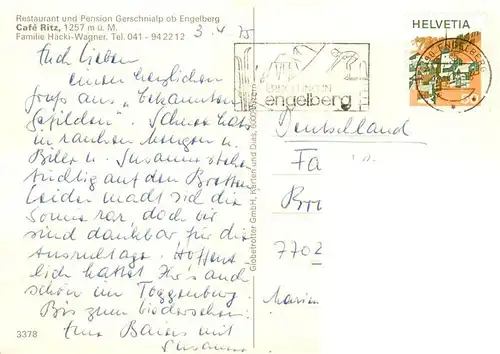 Restaurant und Pension Gerschnialp ob Engelberg
Café Ritz, 1257 m ü. M.
Familie Häcki-Wagner. Tel. 041 - 94 22 12
3.4.75
HELVETIA
ENGELBERG
engelberg
Ihr Lieben
einen herzlichen
Gruss aus "bekannten
Gefilden". Schnee hats
in rauhen Mengen u.
Susanne stehen
tüchtig auf den Bretten
leider macht sich die
Sonne rar, doch wir
sind dankbar für die
Ausruhtage. Hoffent
lich hattet Ihr's auch
schön im Toggenburg.
Bis zum Wiedersehen
Eure mit
Susanne
Deutschland
Fa
7702
Globetrotter GmbH, Karten und Dias, 6000 Luzern
3378